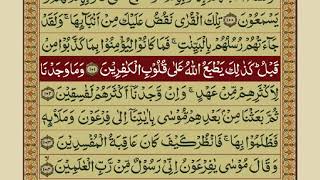 يَسۡمَعُوۡنَ ﴿۱۰۰﴾ تِلۡكَ الۡقُرٰى نَقُصُّ عَلَيۡكَ مِنۡ اَنۡۢبَآٮِٕهَا‌ ۚ وَلَقَدۡ
جَآءَتۡهُمۡ رُسُلُهُمۡ بِالۡبَيِّنٰتِ‌ ۚ فَمَا كَانُوۡا لِيُؤۡمِنُوۡا بِمَا كَذَّبُوۡا مِنۡ
قَبۡلُ‌ ؕ كَذٰلِكَ يَطۡبَعُ اللّٰهُ عَلٰى قُلُوۡبِ الۡكٰفِرِيۡنَ ﴿۱۰۱﴾ وَمَا وَجَدۡنَا
لِاَكۡثَرِهِمۡ مِّنۡ عَهۡدٍ‌ ۚ وَاِنۡ وَّجَدۡنَاۤ اَكۡثَرَهُمۡ لَفٰسِقِيۡنَ ﴿۱۰۲﴾
ثُمَّ بَعَثۡنَا مِنۡۢ بَعۡدِهِمۡ مُّوۡسٰى بِاٰيٰتِنَاۤ اِلٰى فِرۡعَوۡنَ وَمَلَا۟ٮِٕهٖ
فَظَلَمُوۡا بِهَا‌ ۚ فَانْظُرۡ كَيۡفَ كَانَ عَاقِبَةُ الۡمُفۡسِدِيۡنَ ﴿۱۰۳﴾
وَقَالَ مُوۡسٰى يٰفِرۡعَوۡنُ اِنِّىۡ رَسُوۡلٌ مِّنۡ رَّبِّ الۡعٰلَمِيۡنَ ﴿۱۰۴﴾